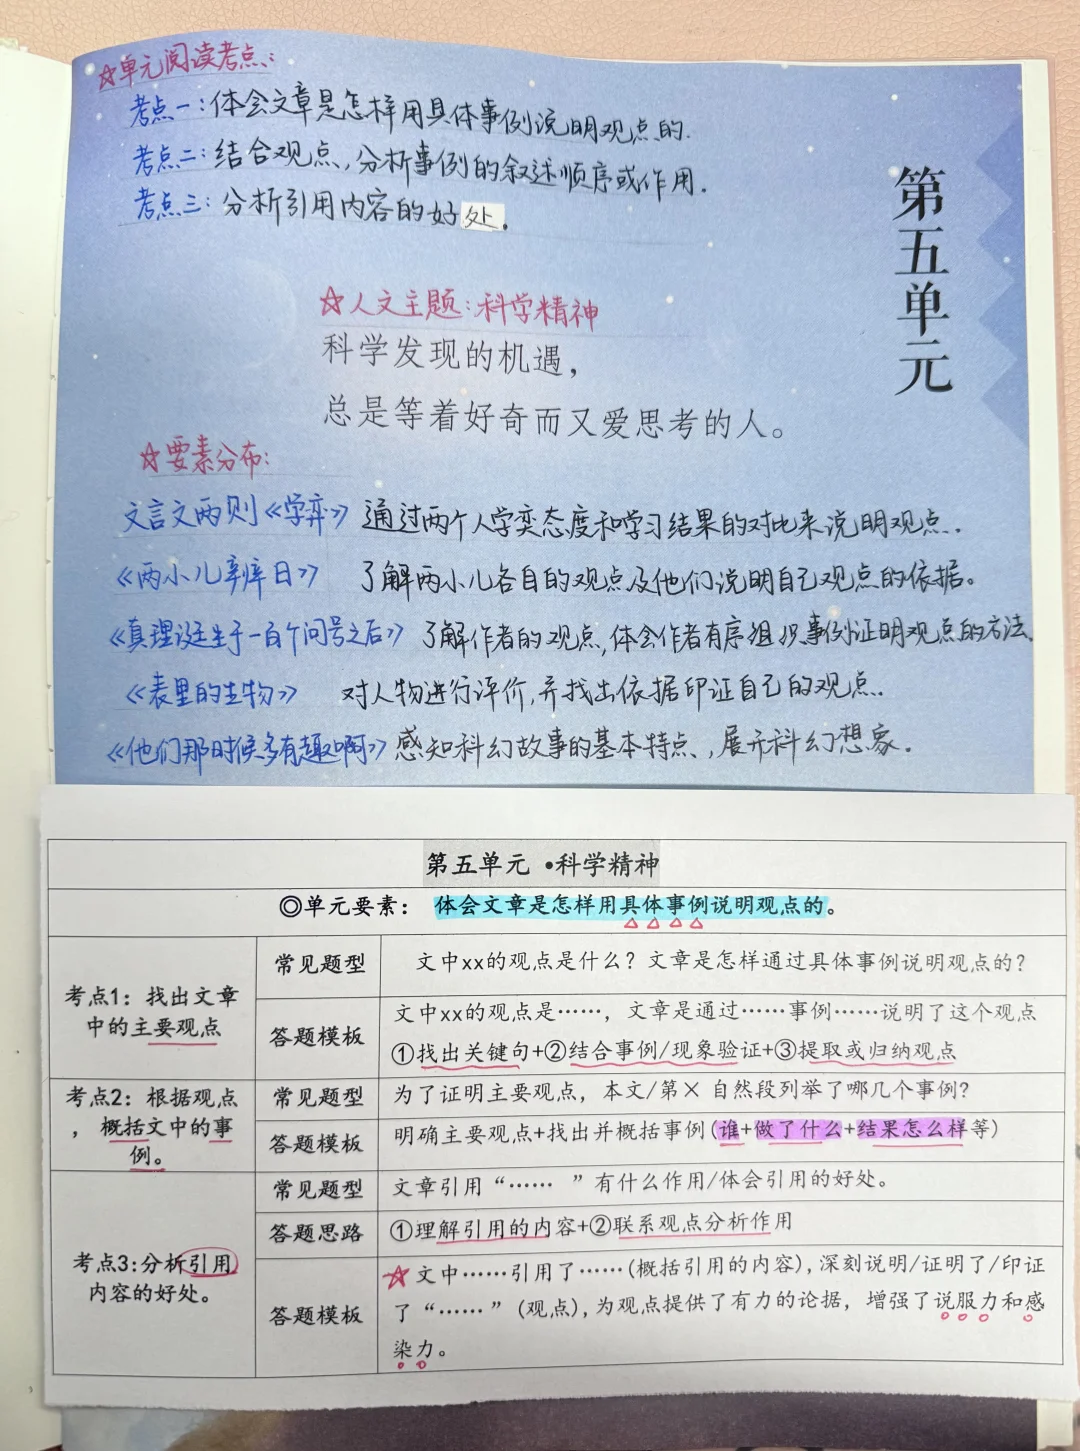 ☆单元阅读考点:
考点一:体会文章是怎样用具体事例说明观点的.
考点二:结合观点,分析事例的叙述顺序或作用.
考点三:分析引用内容的好处.
第五单元
☆人文主题:科学精神
科学发现的机遇,
总是等着好奇而又爱思考的人。
☆要素分布:
文言文两则《学弈》 通过两个人学奕态度和学习结果的对比来说明观点.
《两小儿辩日》 了解两小儿各自的观点及他们说明自己观点的依据。
《真理诞生于一百个问号之后》 了解作者的观点,体会作者有序组织事例证明观点的方法.
《表里的生物》 对人物进行评价,并找出依据印证自己的观点.
《他们那时候多有趣啊》 感知科幻故事的基本特点,展开科幻想象.
第五单元 •科学精神
◎单元要素: 体会文章是怎样用具体事例说明观点的。
考点1:找出文章中的主要观点
常见题型 文中xx的观点是什么?文章是怎样通过具体事例说明观点的?
答题模板 文中xx的观点是……,文章是通过……事例……说明了这个观点
①找出关键句+②结合事例/现象验证+③提取或归纳观点
考点2:根据观点
,概括文中的事
例。
常见题型 为了证明主要观点,本文/第×自然段列举了哪几个事例?
答题模板 明确主要观点+找出并概括事例(谁+做了什么+结果怎么样等)
考点3:分析引用
内容的好处。
常见题型 文章引用“…… ”有什么作用/体会引用的好处。
答题思路 ①理解引用的内容+②联系观点分析作用
答题模板 ☆文中……引用了……(概括引用的内容),深刻说明/证明了/印证
了“……”(观点),为观点提供了有力的论据,增强了说服力和感
染力。